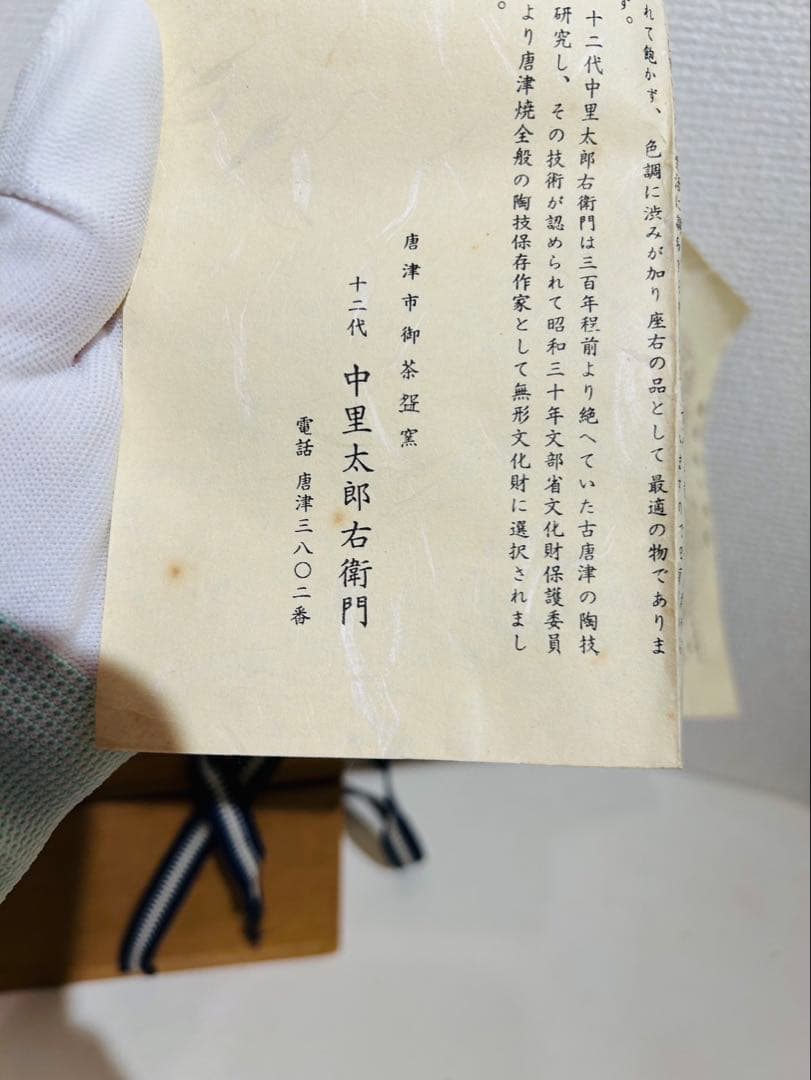 れて飽かず、色調に渋みが加り座右の品として最適の物でありま
す。
十二代中里太郎右衛門は三百年程前より絶へていた古唐津の陶技
研究し、その技術が認められて昭和三十年文部省文化財保護委員
より唐津焼全般の陶技保存作家として無形文化財に選択されまし
。
唐津市御茶盌窯
十二代 中里太郎右衛門
電話 唐津三八〇二番